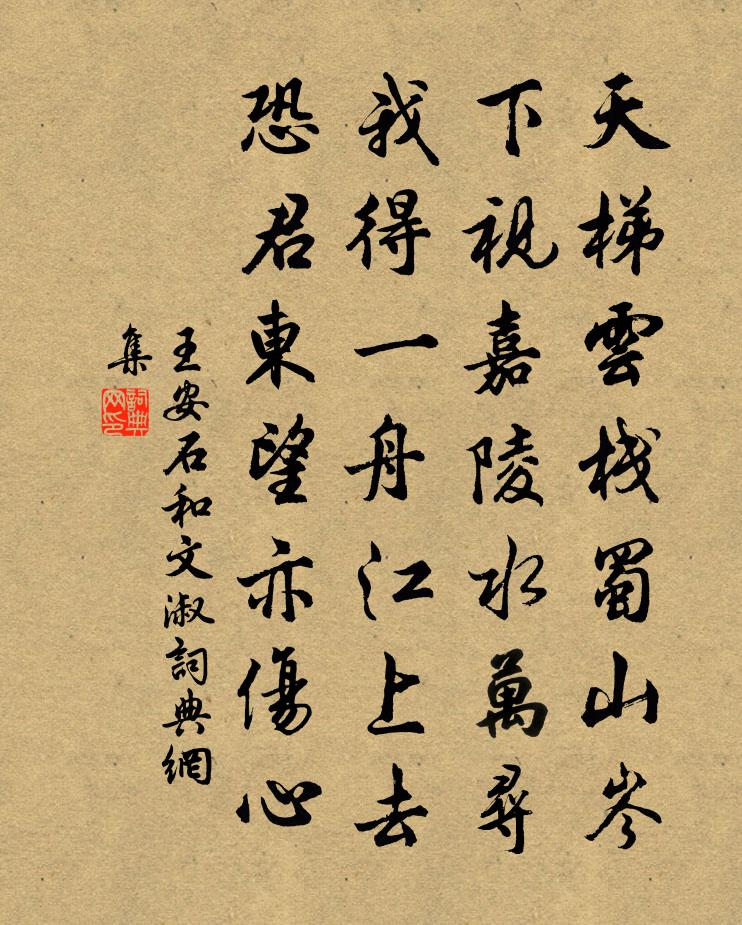 天梯雲棧蜀山岑
下視嘉陵水萬尋
我得一舟江上去
恐君東望亦傷心
王安石和文淑詞典網
集
詞典
网印